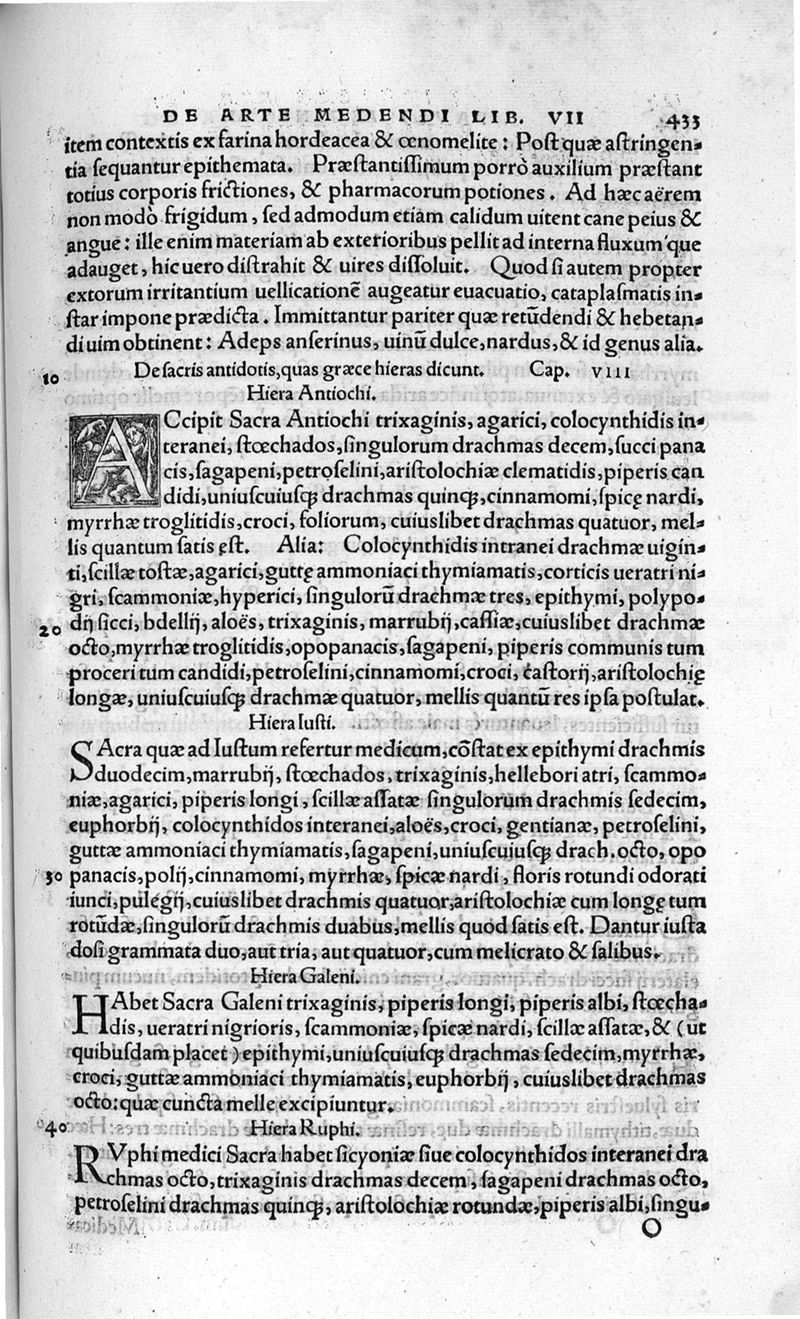 DE ARTE MEDENDI LIB. VII 433
item contextis ex farina hordeacea & œnomelite: Post quæ astringen-
tia sequantur epithemata. Præstantissimum porrò auxilium præstant
totius corporis frictiones, & pharmacorum potiones. Ad hæc aërem
non modò frigidum, sed admodum etiam calidum uitent cane peius &
angue: ille enim materiam ab exterioribus pellit ad interna fluxum que
adauget, hic uero distrahit & uires dissoluit. Quod si autem propter
extorum irritantium uellicationē augeatur euacuatio, cataplasmatis in-
star impone prædicta. Immittantur pariter quæ retūdendi & hebetan-
di uim obtinent: Adeps anserinus, uinū dulce, nardus, & id genus alia.
De sacris antidotis, quas græce hieras dicunt. Cap. VIII
10
Hiera Antiochi.
ACcipit Sacra Antiochi trixaginis, agarici, colocynthidis in-
teranei, stœchados, singulorum drachmas decem, succi pana
cis, sagapeni, petroselini, aristolochiæ clematidis, piperis can
didi, uniuscuiusq; drachmas quinq;, cinnamomi, spicę nardi,
myrrhæ troglitidis, croci, foliorum, cuiuslibet drachmas quatuor, mel-
lis quantum satis est. Alia: Colocynthidis intranei drachmæ uigin-
ti, scillæ tostæ, agarici, guttę ammoniaci thymiamatis, corticis ueratri ni-
gri, scammoniæ, hyperici, singulorū drachmæ tres, epithymi, polypo-
dij sicci, bdellij, aloës, trixaginis, marrubij, cassiæ, cuiuslibet drachmæ
20
octo, myrrhæ troglitidis, opopanacis, sagapeni, piperis communis tum
proceri tum candidi, petroselini, cinnamomi, croci, castorij, aristolochię
longæ, uniuscuiusq; drachmæ quatuor, mellis quantū res ipsa postulat.
Hiera Iusti.
SAcra quæ ad Iustum refertur medicum, cōstat ex epithymi drachmis
duodecim, marrubij, stœchados, trixaginis, hellebori atri, scammo-
niæ, agarici, piperis longi, scillæ assatæ singulorum drachmis sedecim,
euphorbij, colocynthidos interanei, aloës, croci, gentianæ, petroselini,
guttæ ammoniaci thymiamatis, sagapeni, uniuscuiusq; drach. octo, opo
30 panacis, polij, cinnamomi, myrrhæ, spicæ nardi, floris rotundi odorati
iunci, pulegij, cuiuslibet drachmis quatuor, aristolochiæ cum longę tum
rotūdæ, singulorū drachmis duabus, mellis quod satis est. Dantur iusta
dosi grammata duo, aut tria, aut quatuor, cum melicrato & salibus.
Hiera Galeni.
HAbet Sacra Galeni trixaginis, piperis longi, piperis albi, stœcha-
dis, ueratri nigrioris, scammoniæ, spicæ nardi, scillæ assatæ, & (ut
quibusdam placet) epithymi, uniuscuiusq; drachmas sedecim, myrrhæ,
croci, guttæ ammoniaci thymiamatis, euphorbij, cuiuslibet drachmas
octo: quæ cuncta melle excipiuntur.
40
Hiera Ruphi.
RVphi medici Sacra habet sicyoniæ siue colocynthidos interanei dra
chmas octo, trixaginis drachmas decem, sagapeni drachmas octo,
petroselini drachmas quinq;, aristolochiæ rotundæ, piperis albi, singu-
O